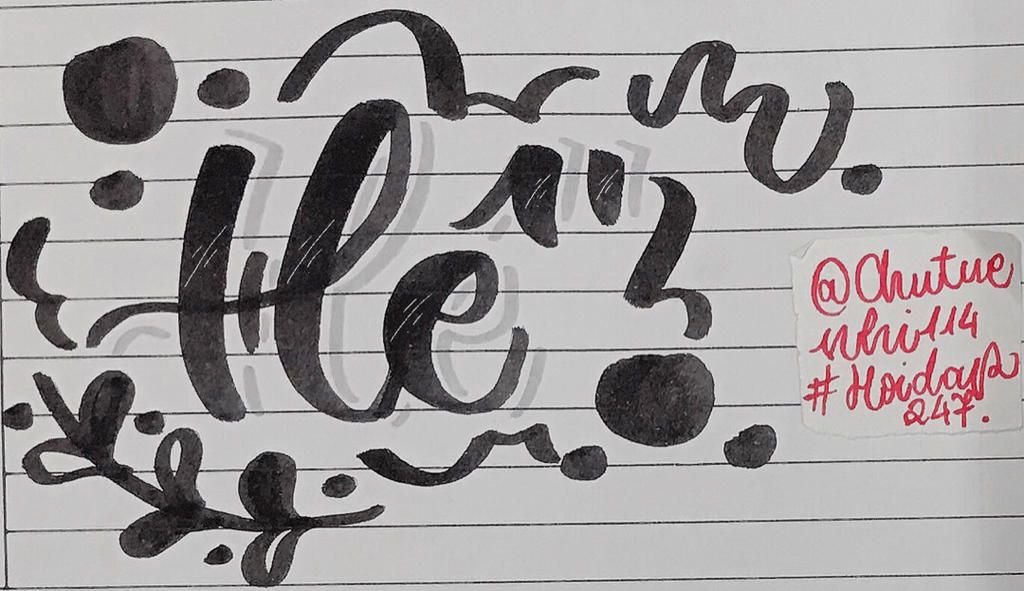 Hề
@Chutue
nhi114
#Hoidap
247.